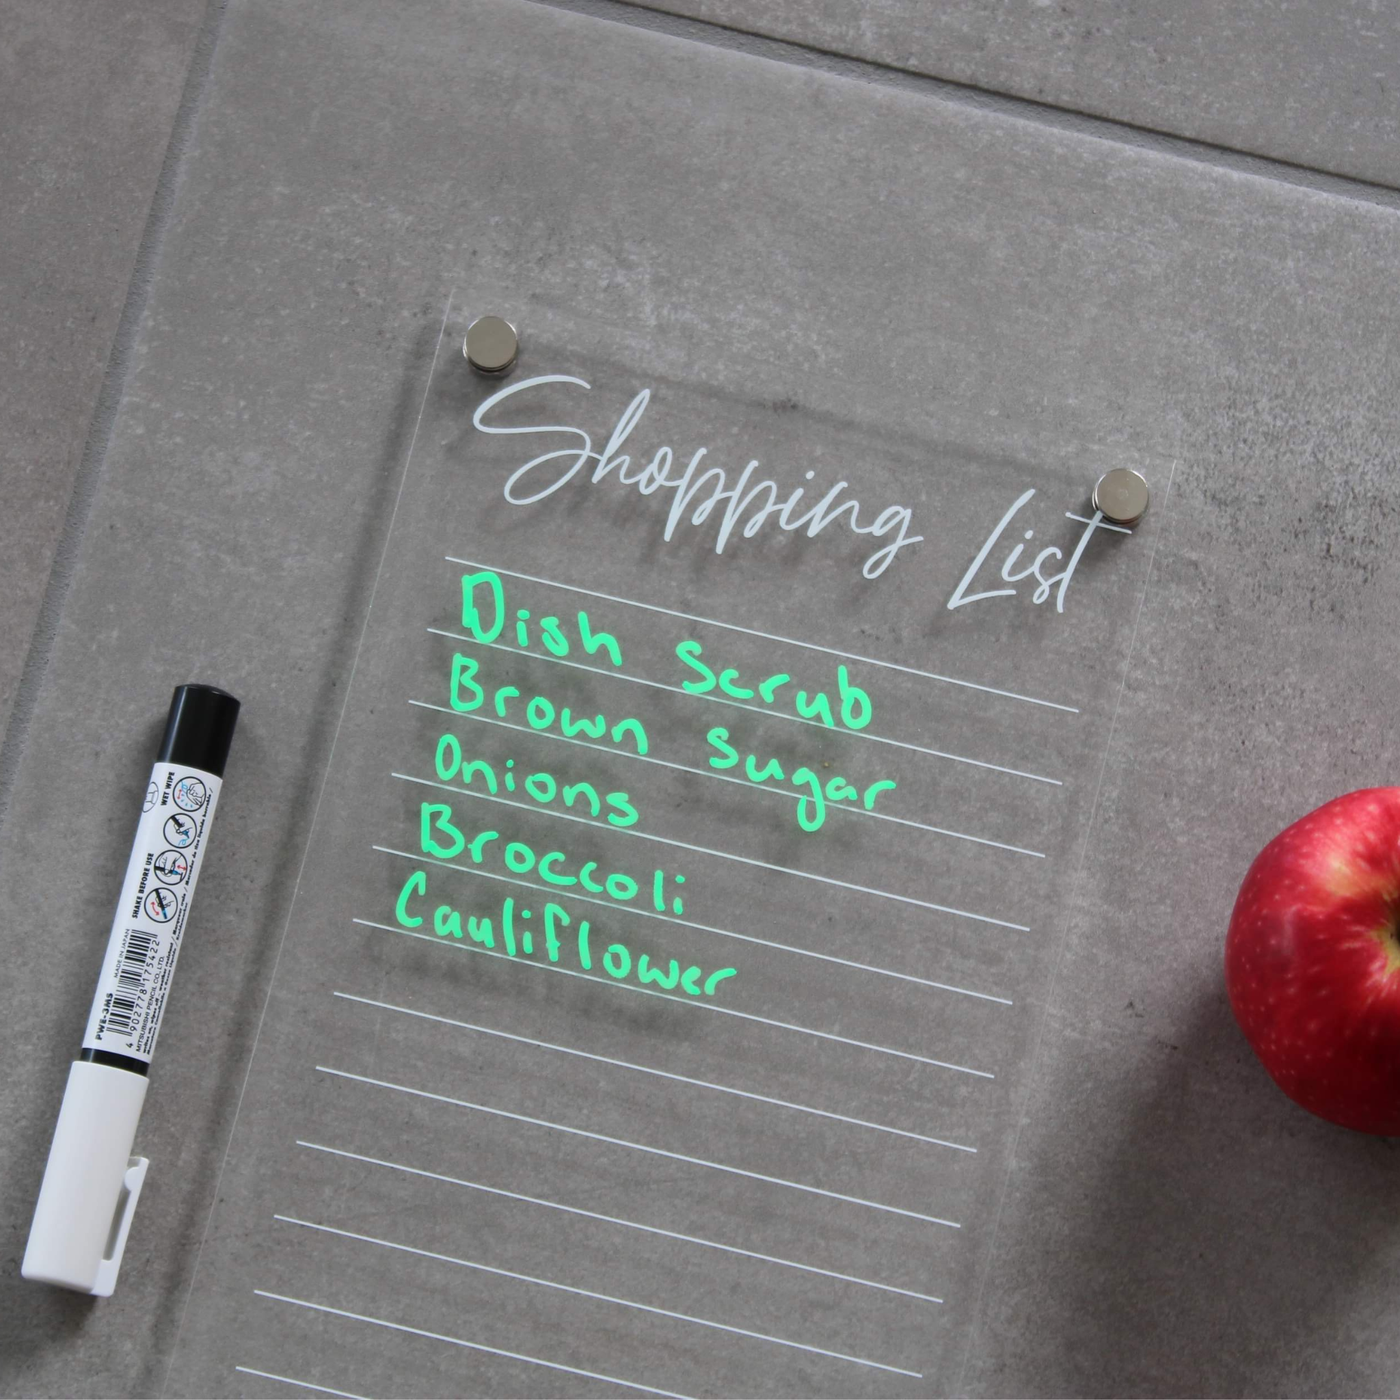 Shopping List
Dish Scrub
Brown Sugar
Onions
Broccoli
Cauliflower
WET WIPE
SHAKE BEFORE USE
MADE IN JAPAN
4 902778 175422
PWE-3MS
MITSUBISHI PENCIL CO., LTD.